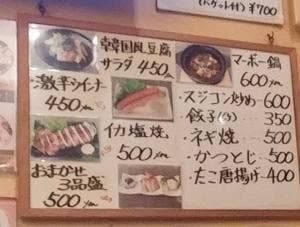 (バゲット付) ¥700
韓国風豆腐
サラダ 450yen
マーボー鍋
600yen
激辛ウインナー
450yen
イカ塩焼
500yen
おまかせ
3品盛
500yen
・スジコン炒め-600
・餃子(5) - 350
・ネギ焼 - 500
・かつとじ - 500
・たこ唐揚げ-400